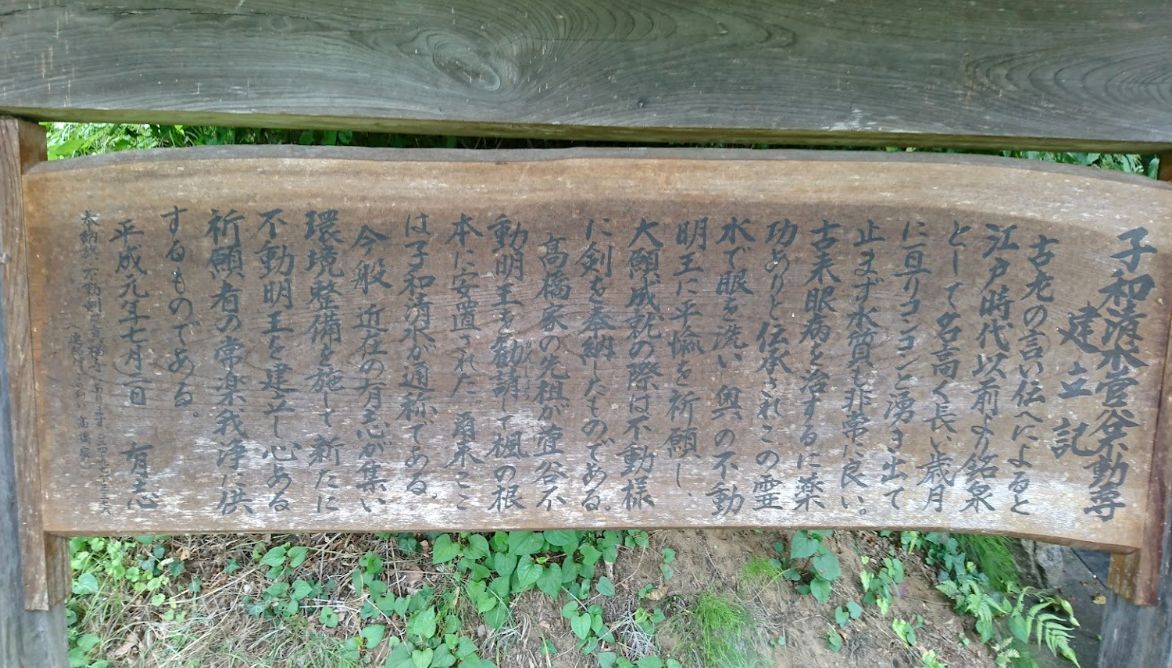 子和清水萱谷不動尊
建立記
古老の言い伝へによると
江戸時代以前より銘泉
として名高く長い歳月
に亘りコンコンと湧き出て
止まず水質も非常に良い。
古来眼病を治するに薬
功ありと伝承されこの霊
水で眼を洗い奥の不動
明王に平愉を祈願し、
大願成就の際は不動様
に剣を奉納したものである。
高橋家の先祖が萱谷不
動明王を勧請して楓の根
本に安置された。爾来ここ
は子和清水が通称である。
今般近在の有志が集い
環境整備を施して新たに
不動明王を建立し心ある
祈願者の常楽我浄に供
するものである。
平成元年七月 日 有志